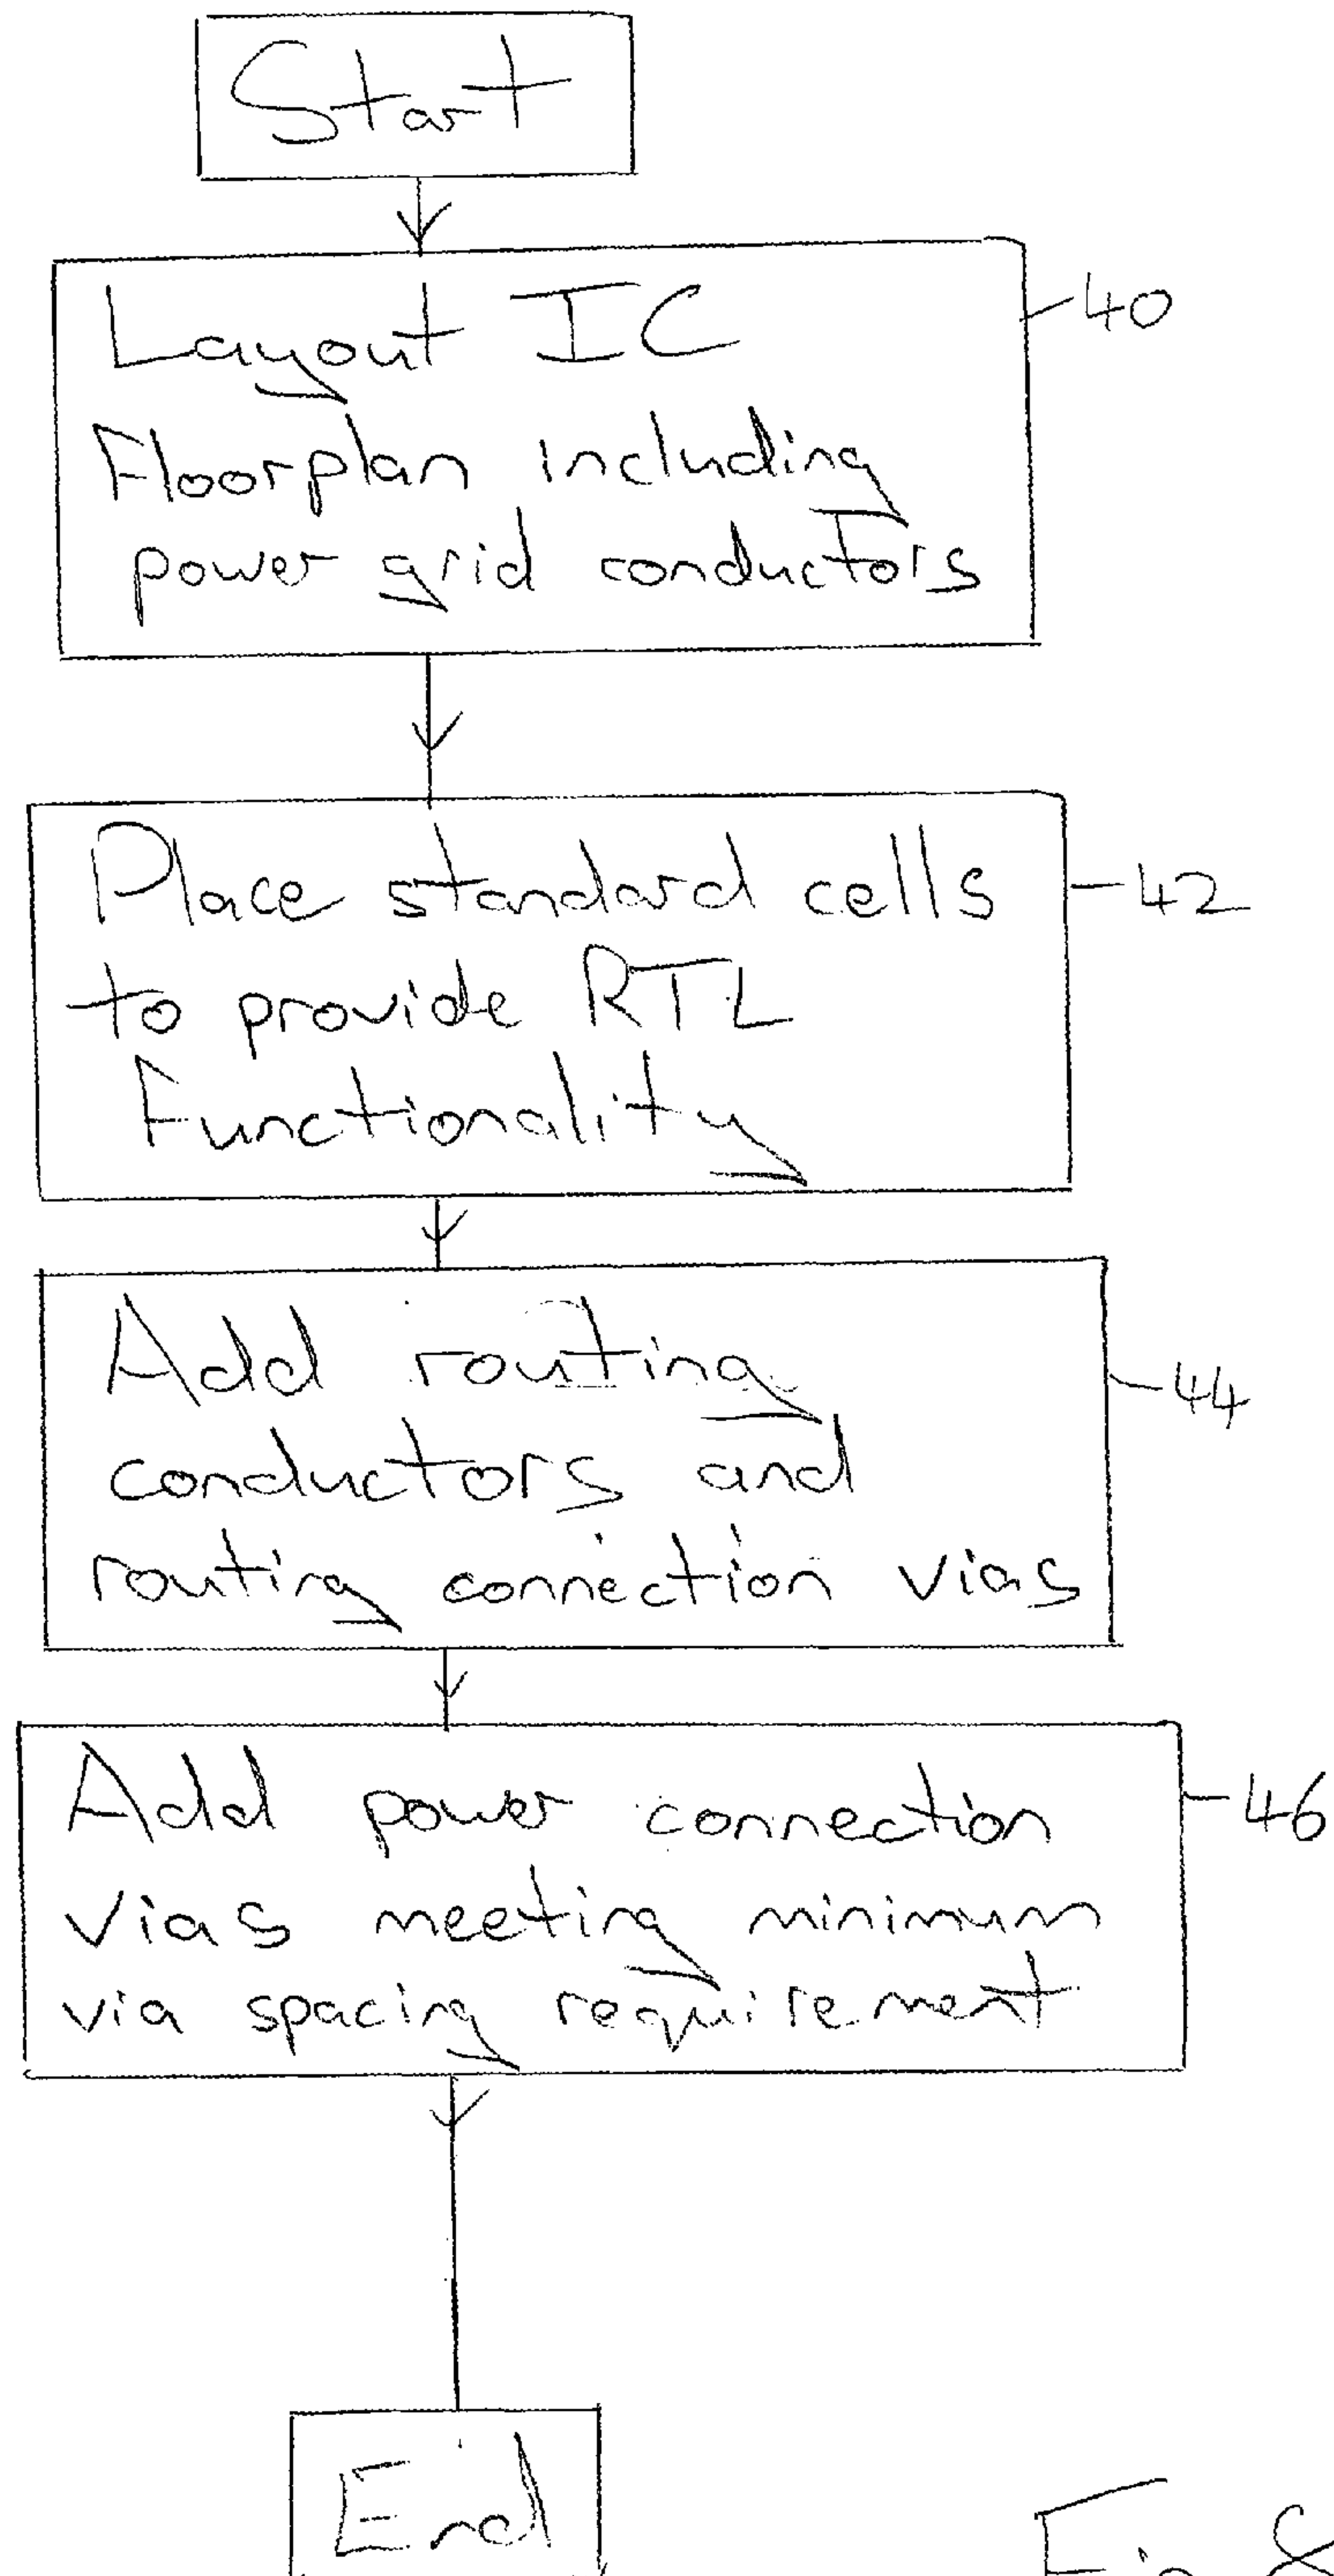 Start
Layout IC
Floorplan including
power grid conductors
40
Place standard cells
to provide RTL
Functionality
42
Add routing
conductors and
routing connection vias
44
Add power connection
vias meeting minimum
via spacing requirement
46
End